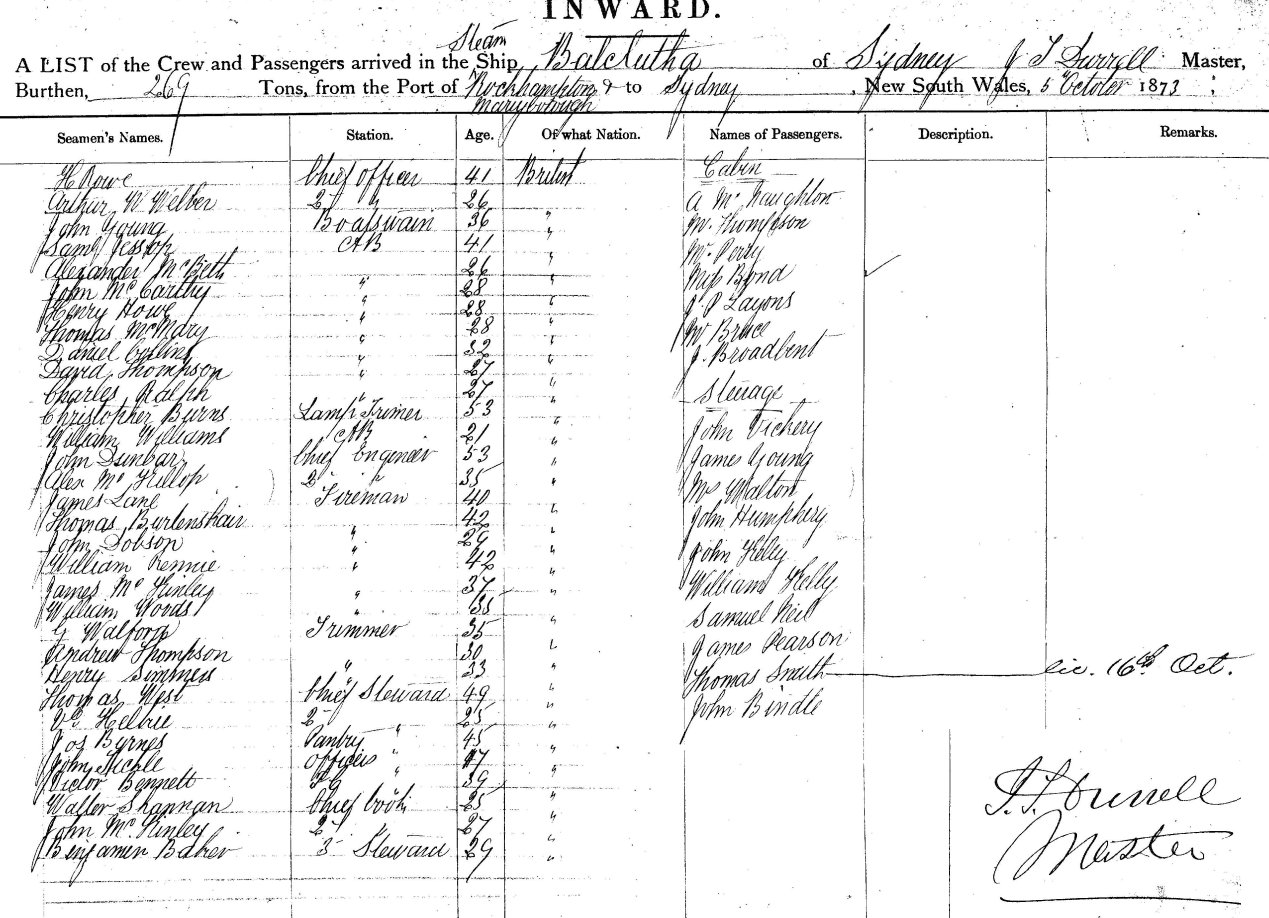 INWARD.
A LIST of the Crew and Passengers arrived in the Steam Ship Balclutha of Sydney J T Durrell Master,
Burthen, 269 Tons, from the Port of Rockhampton & Maryborough to Sydney, New South Wales, 5 October 1873
Seamen's Names. Station. Age. Of what Nation. Names of Passengers. Description. Remarks.
H Rowe Chief Officer 41 British Cabin
Arthur W Welber 2 " 26 A McNaughton
John Young Boatswain 36 " Mr. Thompson
Saml Jessop AB 41 " Mr. Perry
Alexander McBeth " 26 " Miss Bond
John McCarthy " 28 "
Henry Howe " 28 " J. P Layons
Thomas McMary " 28 " Mr Bruce
Daniel " 32 " J. Broadbent
David Thompson " 27 "
Charles Ralph " 27 " Steerage
Christopher Burns Lamp Trimer 53 "
William Williams AB 21 " John Vichery
John Dunbar Chief Engineer 53 " James Young
Alex McKillop 2 " 35 "
James Lane Fireman 40 " Mrs Walton
Thomas Burlenshair " 42 " John Humphery
John Dobson " 29 "
William Rennie " 42 " John Kelly
James McKinley " 37 " William Kelly
William Woods " 35 " Samuel Neil
G Walford Trimmer 35 "
Andrew Thompson " 30 " James Pearson
Henry Simmers " 33 " Thomas Smith lic. 16th Oct.
Thomas West Chief Steward 49 " John Bindle
2 " 25 "
Jos Byrnes Pantry " 45 "
John Officers " 17 "
Victor Bennett " 39 "
Walter Shannan Chief Cook 25 "
John McKinley 2 " 27 "
Benjamin Baker 3 Steward 29 "
J. T. Durrell
Master